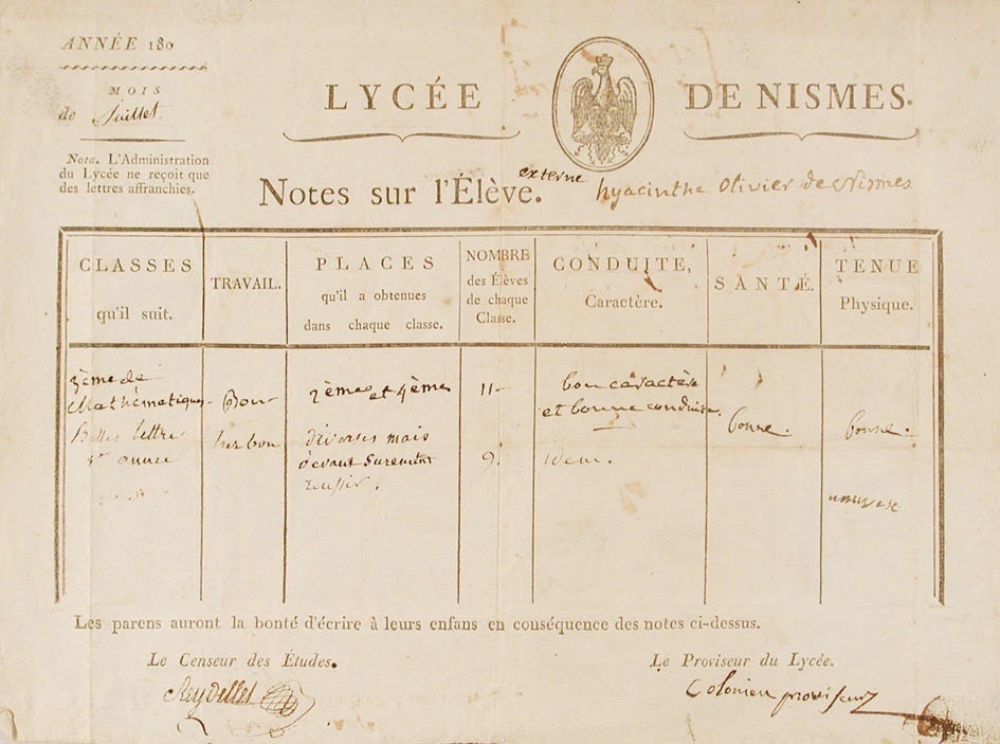 ANNÉE 180
MOIS
de Juillet.
Nota. L'Administration
du Lycée ne reçoit que
des lettres affranchies.
LYCÉE DE NISMES.
Notes sur l'Élève. externe hyacinthe Olivier de Nismes
CLASSES
qu'il suit.
TRAVAIL.
PLACES
qu'il a obtenues
dans chaque classe.
NOMBRE
des Élèves
de chaque
Classe.
CONDUITE,
Caractère.
SANTÉ.
TENUE
Physique.
3ème de
Mathématiques
Bon
2èmes et 4èmes
11
bon caractère
et bonne conduite.
bonne.
bonne.
Belles lettre
1re année
tres bon
diverses mais
devant surement
reussir.
9.
idem.
Les parens auront la bonté d'écrire à leurs enfans en conséquence des notes ci-dessus.
Le Censeur des Études.
Reydellet
Le Proviseur du Lycée.
proviseur